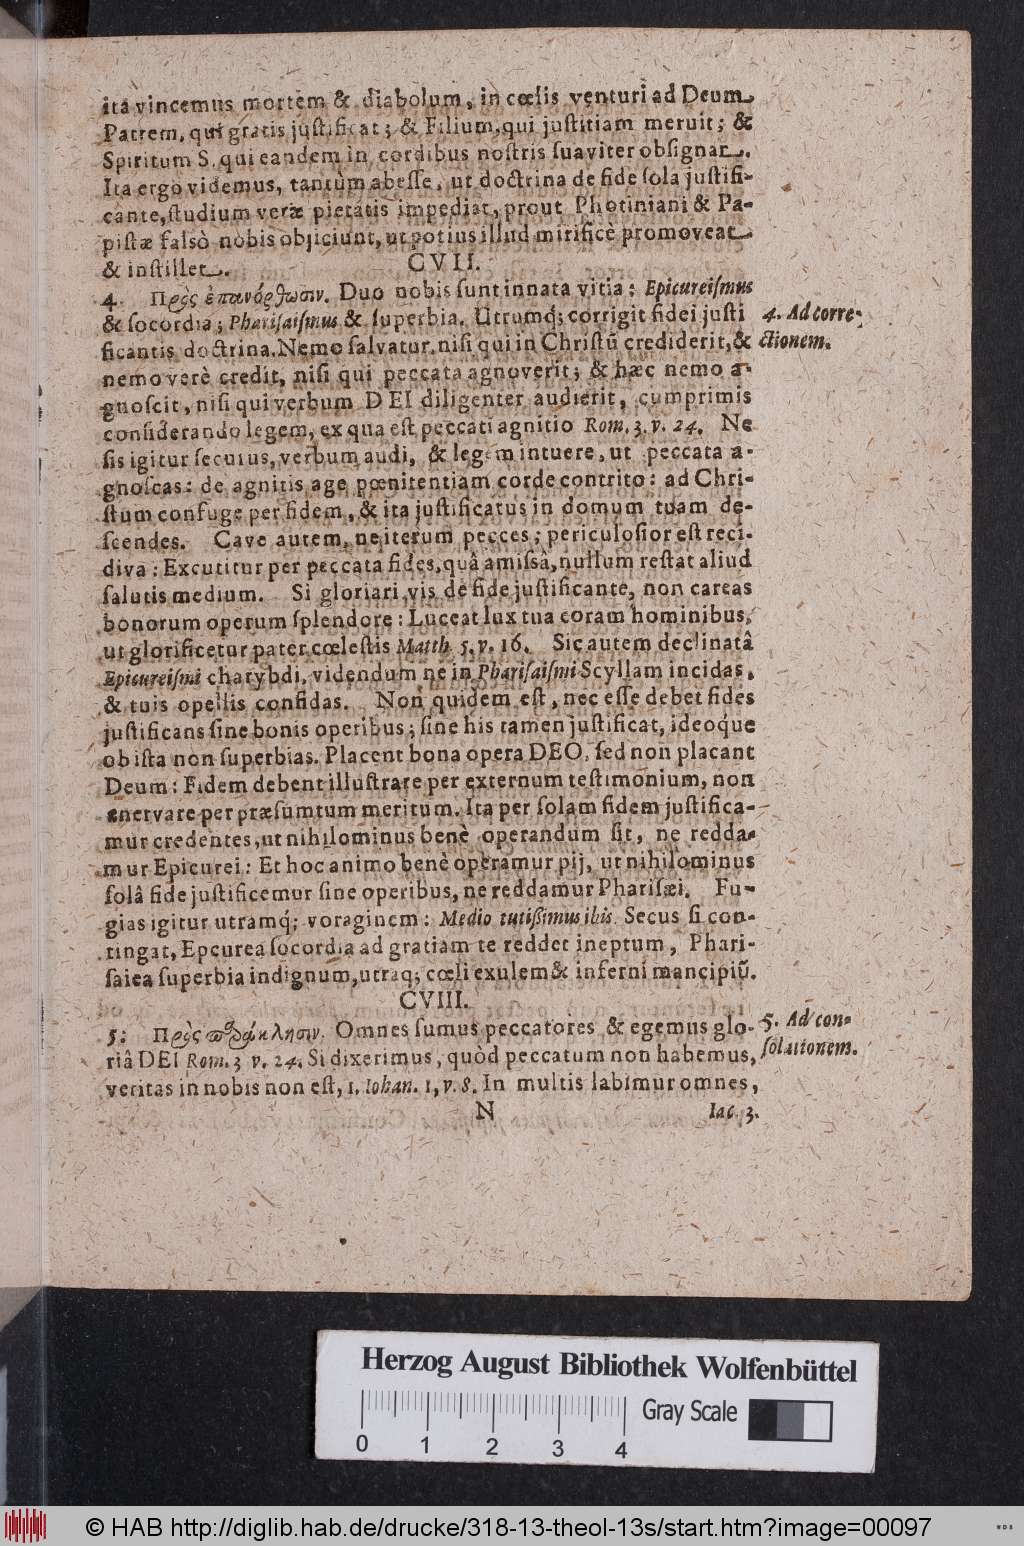 itâ vincemus mortem & diabolum, in cœlis venturi ad Deum
Patrem, qui gratis juſtificat; & Filium, qui juſtitiam meruit; &
Spiritum S. qui eandem in cordibus noſtris ſuaviter obſignat.
Ita ergo videmus, tantùm abeſſe, ut doctrina de fide ſola juſtifi-
cante, ſtudium veræ pietatis impediat, prout Photiniani & Pa-
piſtæ falsò nobis objiciunt, ut potius illud mirificè promoveat
& inſtillet.
CVII.
4. Πρὸς ἐπανόρθωσιν. Duo nobis ſunt innata vitia: Epicureiſmus
& ſocordia; Phariſaiſmus & ſuperbia. Utrumq́; corrigit fidei juſti
4. Ad corre-
ficantis doctrina. Nemo ſalvatur, niſi qui in Chriſtũ crediderit, &
ctionem.
nemo verè credit, niſi qui peccata agnoverit; & hæc nemo a-
gnoſcit, niſi qui verbum DEI diligenter audierit, cumprimis
conſiderando legem, ex qua eſt peccati agnitio Rom. 3. v. 24. Ne
ſis igitur ſecurus, verbum audi, & legem intuere, ut peccata a-
gnoſcas: de agnitis age pœnitentiam corde contrito: ad Chri-
ſtum confuge per fidem, & ita juſtificatus in domum tuam de-
ſcendes. Cave autem, ne iterum pecces; periculoſior eſt reci-
diva: Excutitur per peccata fides, quâ amiſsâ, nullum reſtat aliud
ſalutis medium. Si gloriari vis de fide juſtificante, non careas
bonorum operum ſplendore: Luceat lux tua coram hominibus,
ut glorificetur pater cœleſtis Matth. 5. v. 16. Sic autem declinatâ
Epicureiſmi charybdi, videndum ne in Phariſaiſmi Scyllam incidas,
& tuis operis confidas. Non quidem eſt, nec eſſe debet fides
juſtificans ſine bonis operibus; ſine his tamen juſtificat, ideoq́ue
ob iſta non ſuperbias. Placent bona opera DEO, ſed non placant
Deum: Fidem debent illuſtrare per externum teſtimonium, non
enervare per præſumtum meritum. Ita per ſolam fidem juſtifica-
mur credentes, ut nihilominus benè operandum ſit, ne redda-
mur Epicurei: Et hoc animo benè operamur pij, ut nihilominus
ſolâ fide juſtificemur ſine operibus, ne reddamur Phariſæi. Fu-
gias igitur utramq́; voraginem: Medio tutißimus ibis. Secus ſi con-
tingat, Epcurea ſocordia ad gratiam te reddet ineptum, Phari-
ſaica ſuperbia indignum, utraq; cœli exulem & inferni mancipiũ.
CVIII.
5. Πρὸς παράκλησιν. Omnes ſumus peccatores & egemus glo-
5. Ad con-
riâ DEI Rom. 3 v. 24. Si dixerimus, quòd peccatum non habemus,
ſolationem.
veritas in nobis non eſt, 1. Iohan. 1, v. 8. In multis labimur omnes,
N
Iac. 3.
Herzog August Bibliothek Wolfenbüttel
Gray Scale
0 1 2 3 4
© HAB http://diglib.hab.de/drucke/318-13-theol-13s/start.htm?image=00097